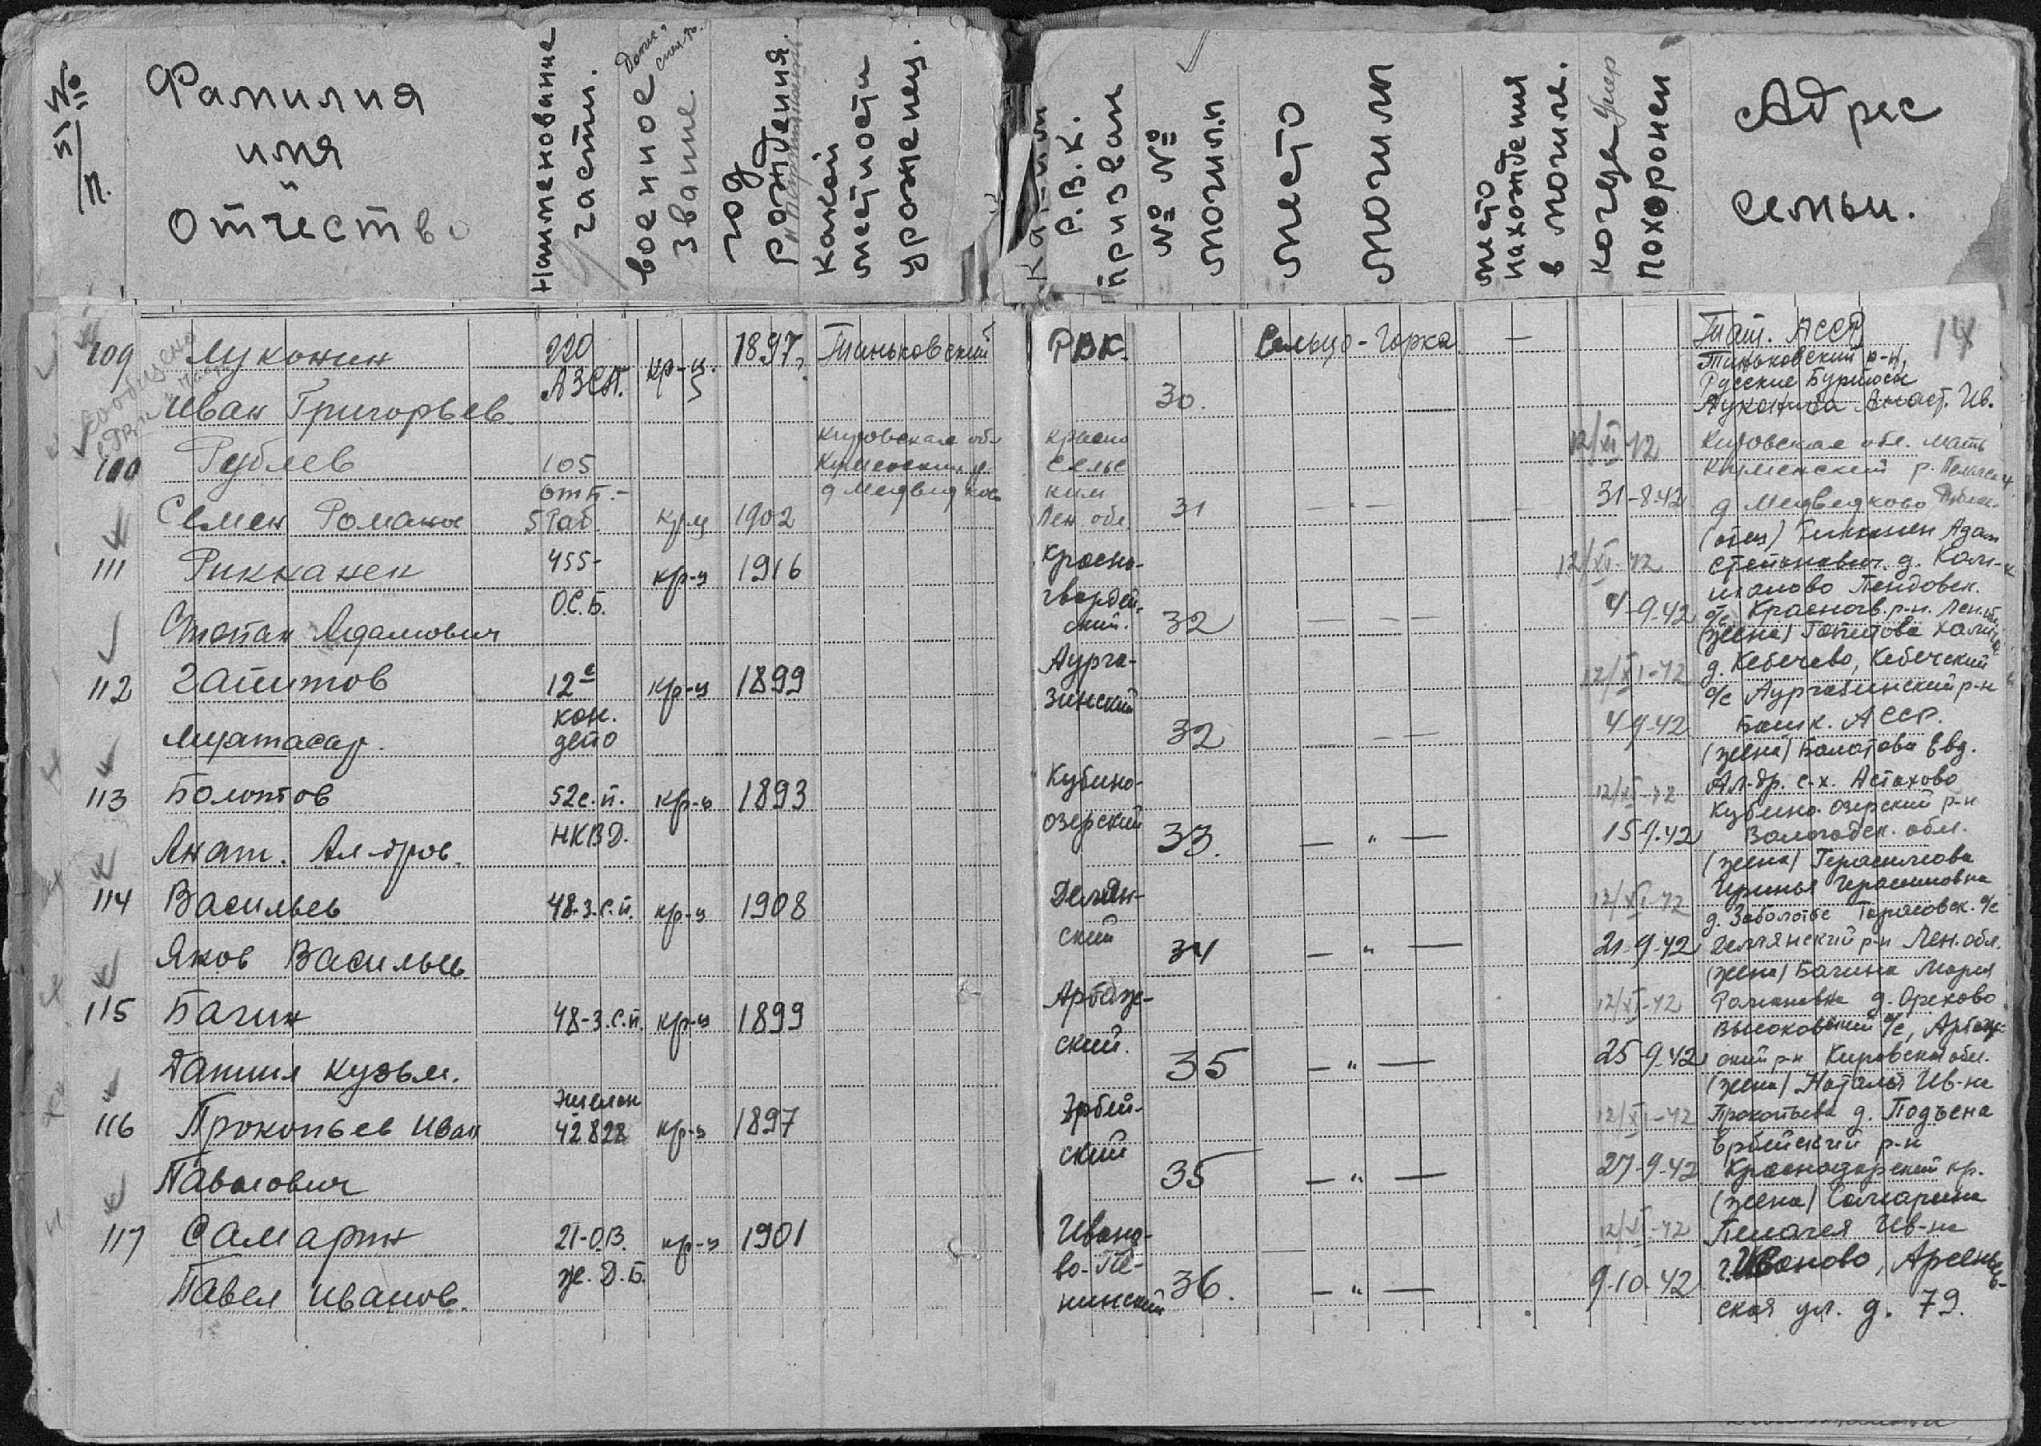 №№
п/п.
Фамилия
имя
"
отчество
Наименование
части.
военное
звание.
год
рождения.
какой
местности
урожденец.
Р.В.К.
призван
№№ №№
могил.п
место
могилы
место
нахождения
в могиле.
когда умер
похоронен
Адрес
семьи.
14
109 Луконин 220 кр-ц. 1897 Тиньковский РВК. Сельцо-Горка — Тат. АССР
Тиньковский р-н,
Русские Бурнаси
АЗСП.
Иван Григорьев. 30. Луконина Анаст. Ив.
110 Рублев 105 Кировская обл Красно 12/XI-42 Кировская обл. мать
Куменский р. Сельс Куменский р.
отп.- д Медведково ким
Семен Романов 5 Раб. крц 1902 Лен. обл. 31 — " — 31-8-42 д Медведково
111 Рикканен 455- кр-ц 1916 Красно- 12/XI-42 (отец) Рикконен Адам
О.С.Б. гвардей-
ский.
Степан Адамович 32 — — — 4-9-42 Красногв. р-н. Лен.
112 Гапитов 12е кр-ц 1899 Аурга- 12/XI-42 (жена) Гапитова
кон. зинский д. Кебечево, Кебечский
с/с Аургазинский р-н
Муртасар. депо 32 — — — 4-9-42 Башк. АССР.
113 Болотов 52 с.п. кр-ц 1893 Кубино- 12/XI-42 (жена) Болотова Евд.
Ал-др. с-х. Астахово
НКВД. озерский Кубино-озерский р-н
Анат. Ал-дров. 33. — " — 15-9-42 Вологодск. обл.
114 Васильев 48-з.с.п. кр-ц 1908 Демян- 12/XI-42 (жена) Герасимова
ский д. Заболотье
Яков Васильев 34 — " — 21-9-42 Демянский р-н Лен. обл.
115 Багин 48-з.с.п. кр-ц 1899 Арбаж- 12/XI-42 (жена) Багина Мария
Романовна д. Орехово
ский. Высоковский с/с, Арбаж-
Данил Кузьм. 35 — " — 25-9-42 ский р-н Кировской обл.
116 Прокопьев Иван эшелон кр-ц 1897 Ирбей- 12/XI-42 (жена) Наталья Ив-на
42828 Прокопьева д. Подъена
ский Ирбейский р-н
Павлович 35 — " — 27-9-42 Краснодарский кр.
117 Самарин 21-О.В. кр-ц 1901 Ивано- 12/XI-42 (жена) Самарина
Пелагея Ив-на
ж.Д.Б. во-Ле-
Павел Иванов. нинский 36. — " — 9-10-42 г. Иваново, Арсеньев-
ская ул. д. 79.